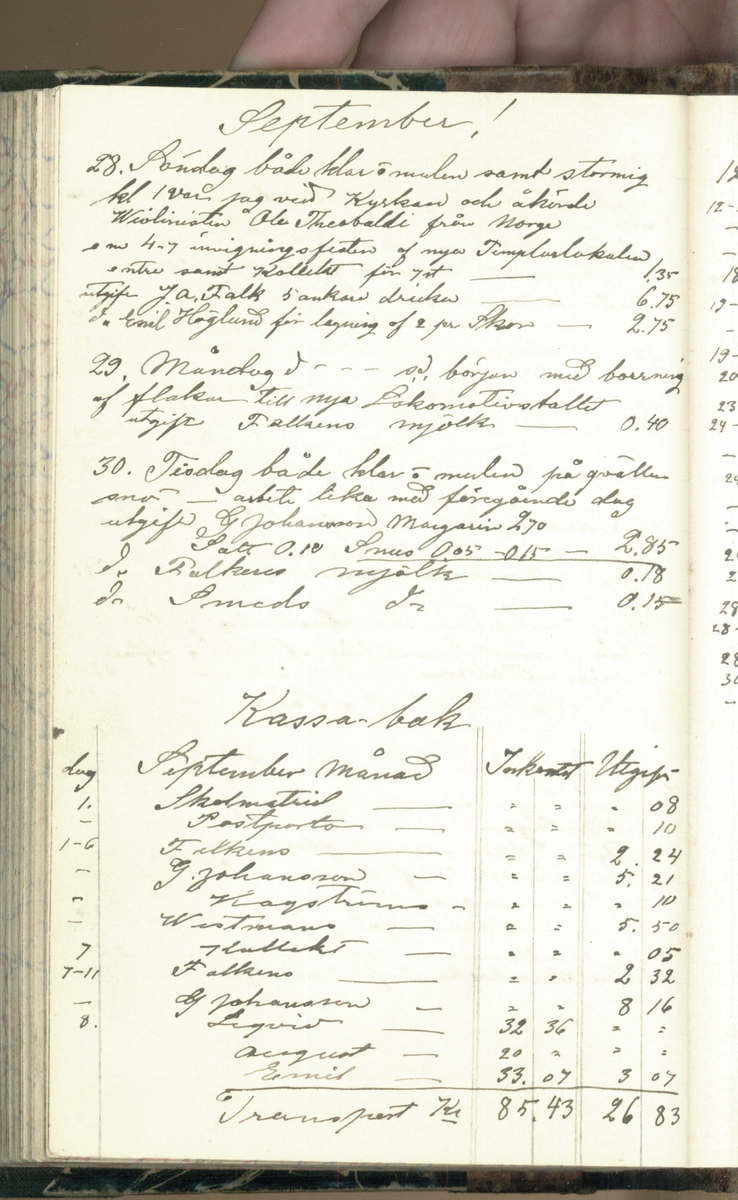 September!
28. Söndag både klar o mulen samt stormig
kl 1 var jag ved Kyrkan och åhörde
Wiolinisten Ole Theobaldi från Norge
e m 4-7 invigningsfesten af nya Templarlokalen
entre samt Kollekt för 7st — 1.35
utgift J. A. Falk 5 ankare dricka — 6.75
d:o Emil Höglund för lagning af 2 pr Skor — 2.75
29. Måndag d - - - sd. början med borrning
af flakar till nya Lokomotivstallet
utgift Falkens mjölk — 0.40
30. Tisdag både klar o mulen på qvällen
snö — arbete lika med föregående dag
utgift G Johansson Margarin 2,70
Salt 0.10 Snus 0.05 - 0.15 — 2.85
d:o Falkens mjölk — 0.18
d:o Smeds d:o — 0.15
Kassa-bok
dag September Månad Inkomst Utgift
1. Skolmatriel — " " " 08
– Postporto — " " " 10
1-6 Falkens — " " 2. 24
– G. Johansson — " " 5. 21
" Hagströms - " " " 10
– Westmans — " " 5. 50
7 Kollekt — " " " 05
7-11 Falkens — " " 2 32
– G Johansson – " " 8 16
8. Liqvid — 32 36 " "
August — 20 " " "
Emil — 33. 07 3 07
Transport Kr 85. 43 26 83
12
12-
–
–
18
19-
–
19-
20
23
24-
–
24
–
–
2
28
28-
28
30
–